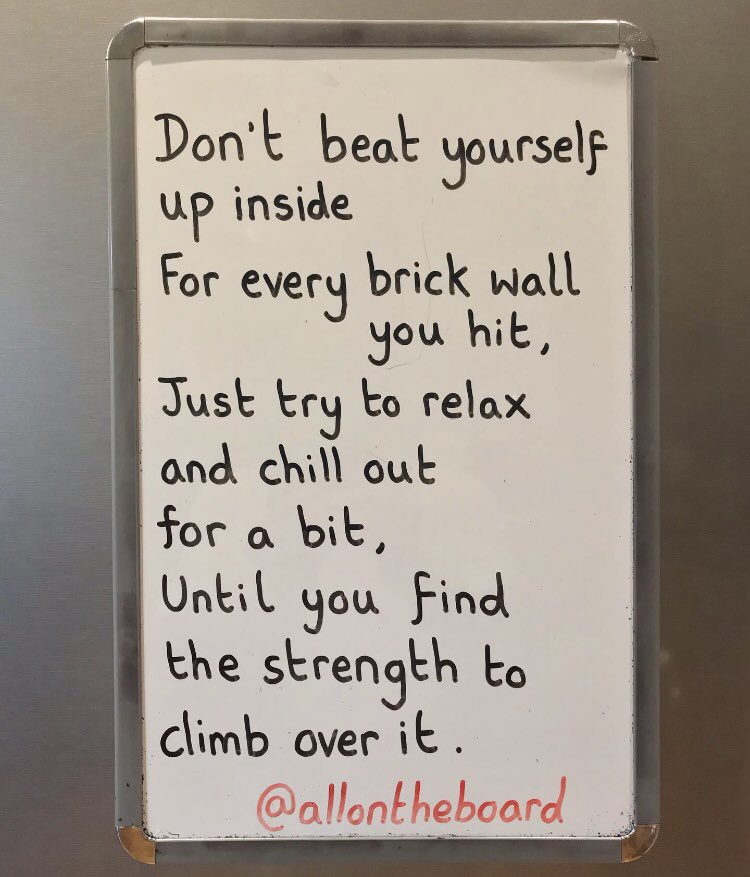 Don't beat yourself
up inside
For every brick wall
you hit,
Just try to relax
and chill out
for a bit,
Until you find
the strength to
climb over it.
@allontheboard